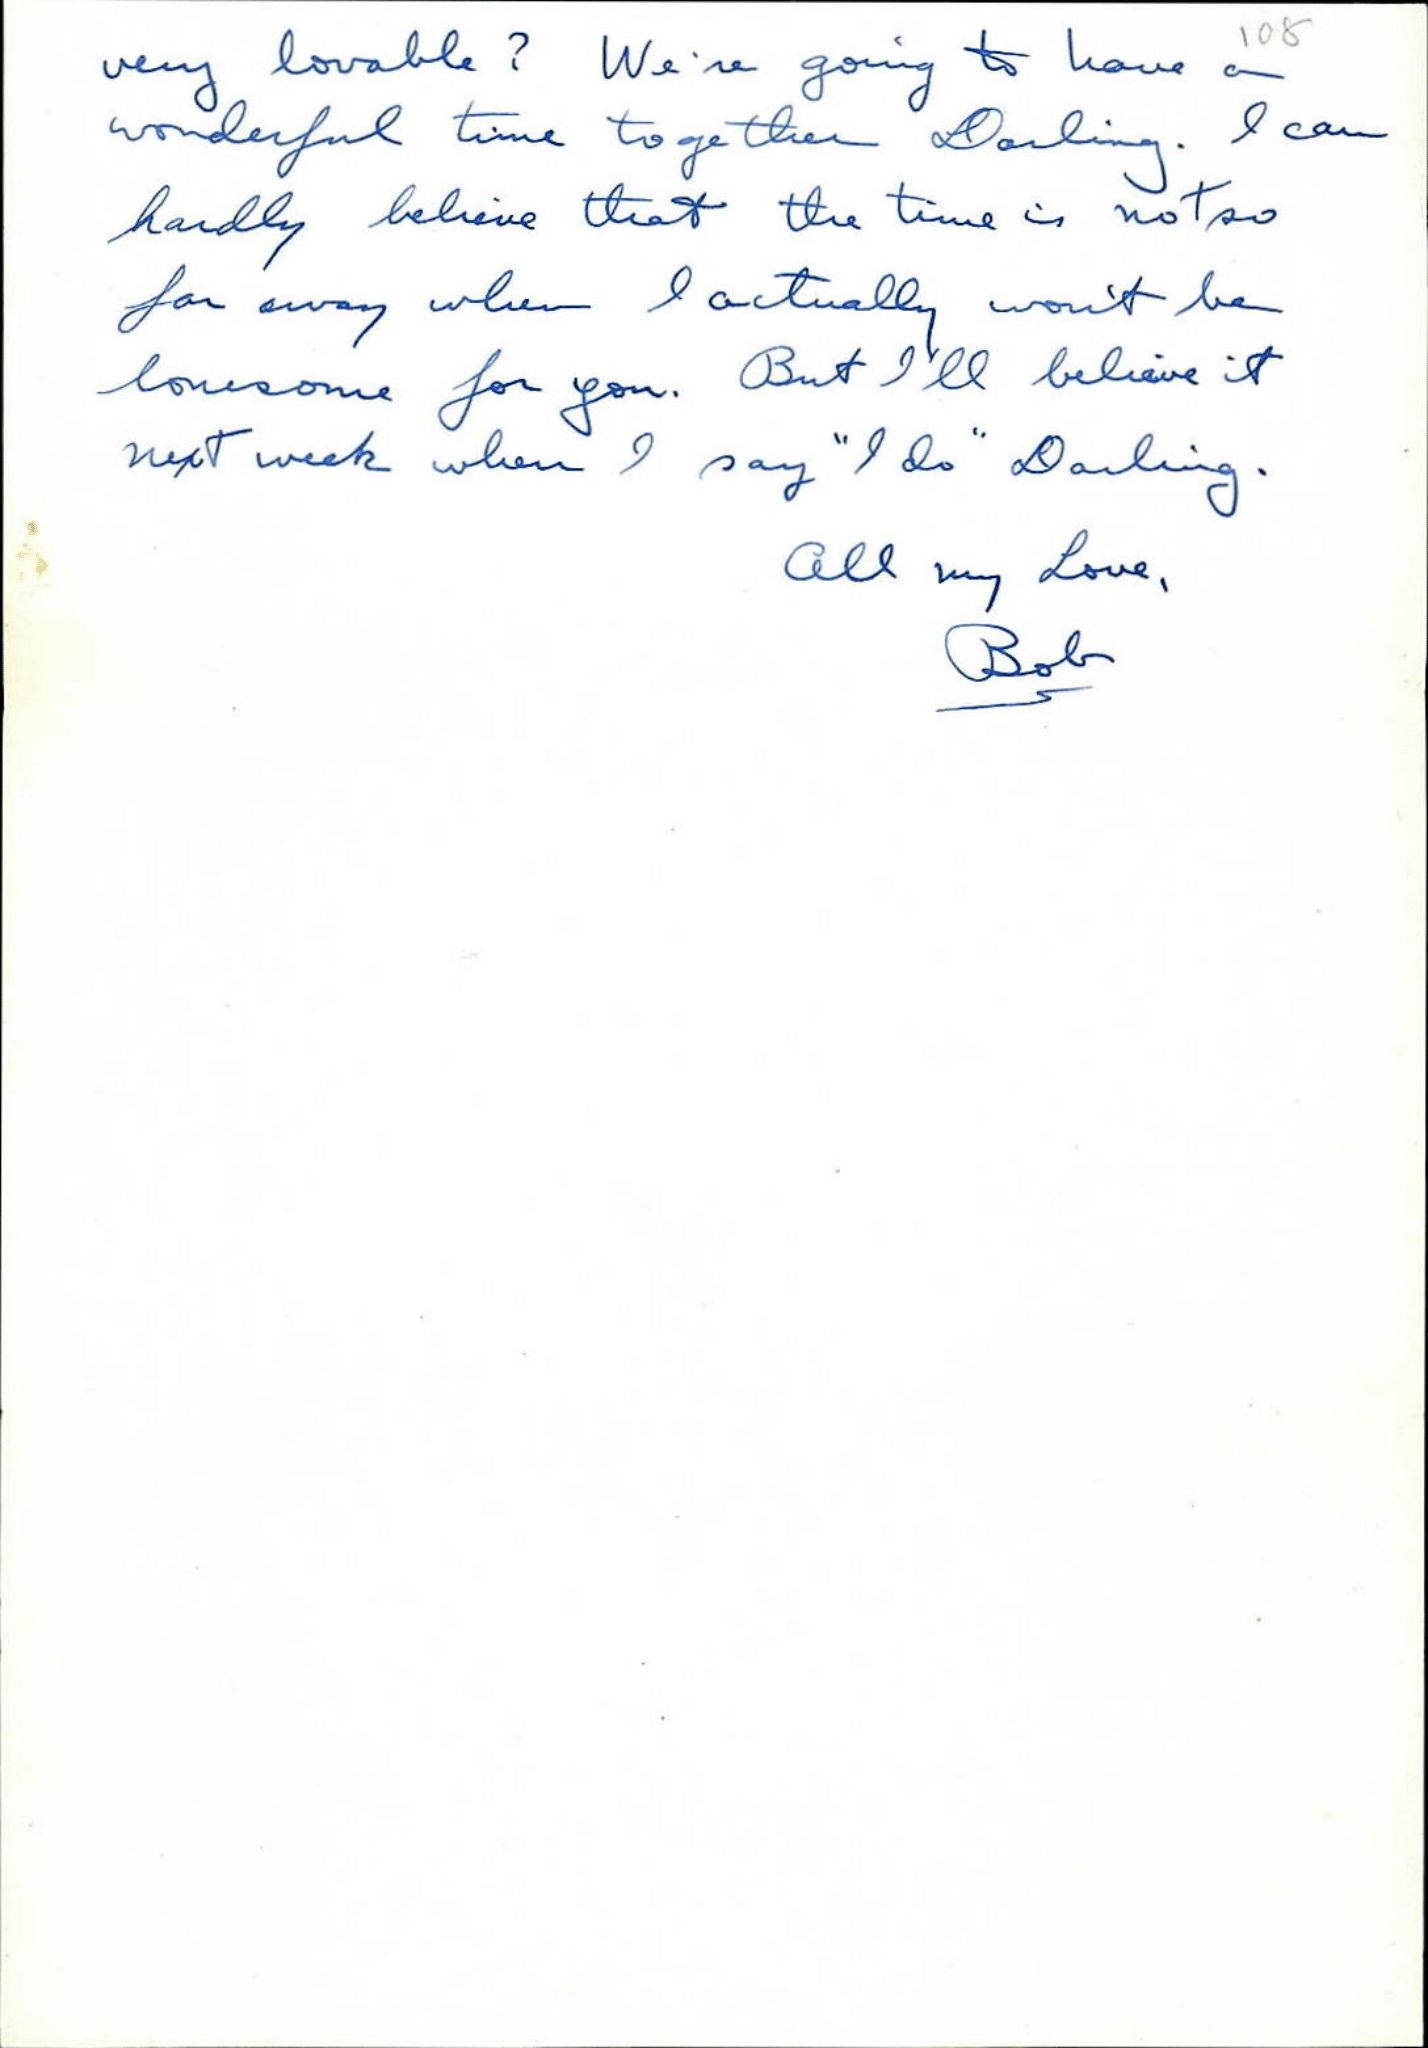 108
very lovable? We're going to have a
wonderful time together Darling. I can
hardly believe that the time is not so
far away when I actually won't be
lonesome for you. But I'll believe it
next week when I say "I do" Darling.
All my Love,
Bob